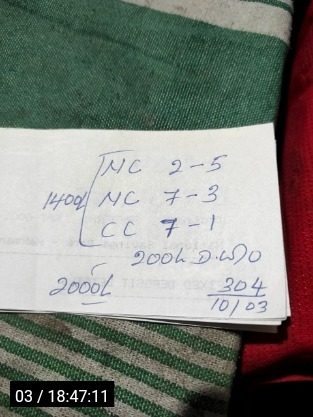 MC 2-5
140d MC 7-3
CC 7-1
200L D.W/O
2000L 304
10/03
03 / 18:47:11